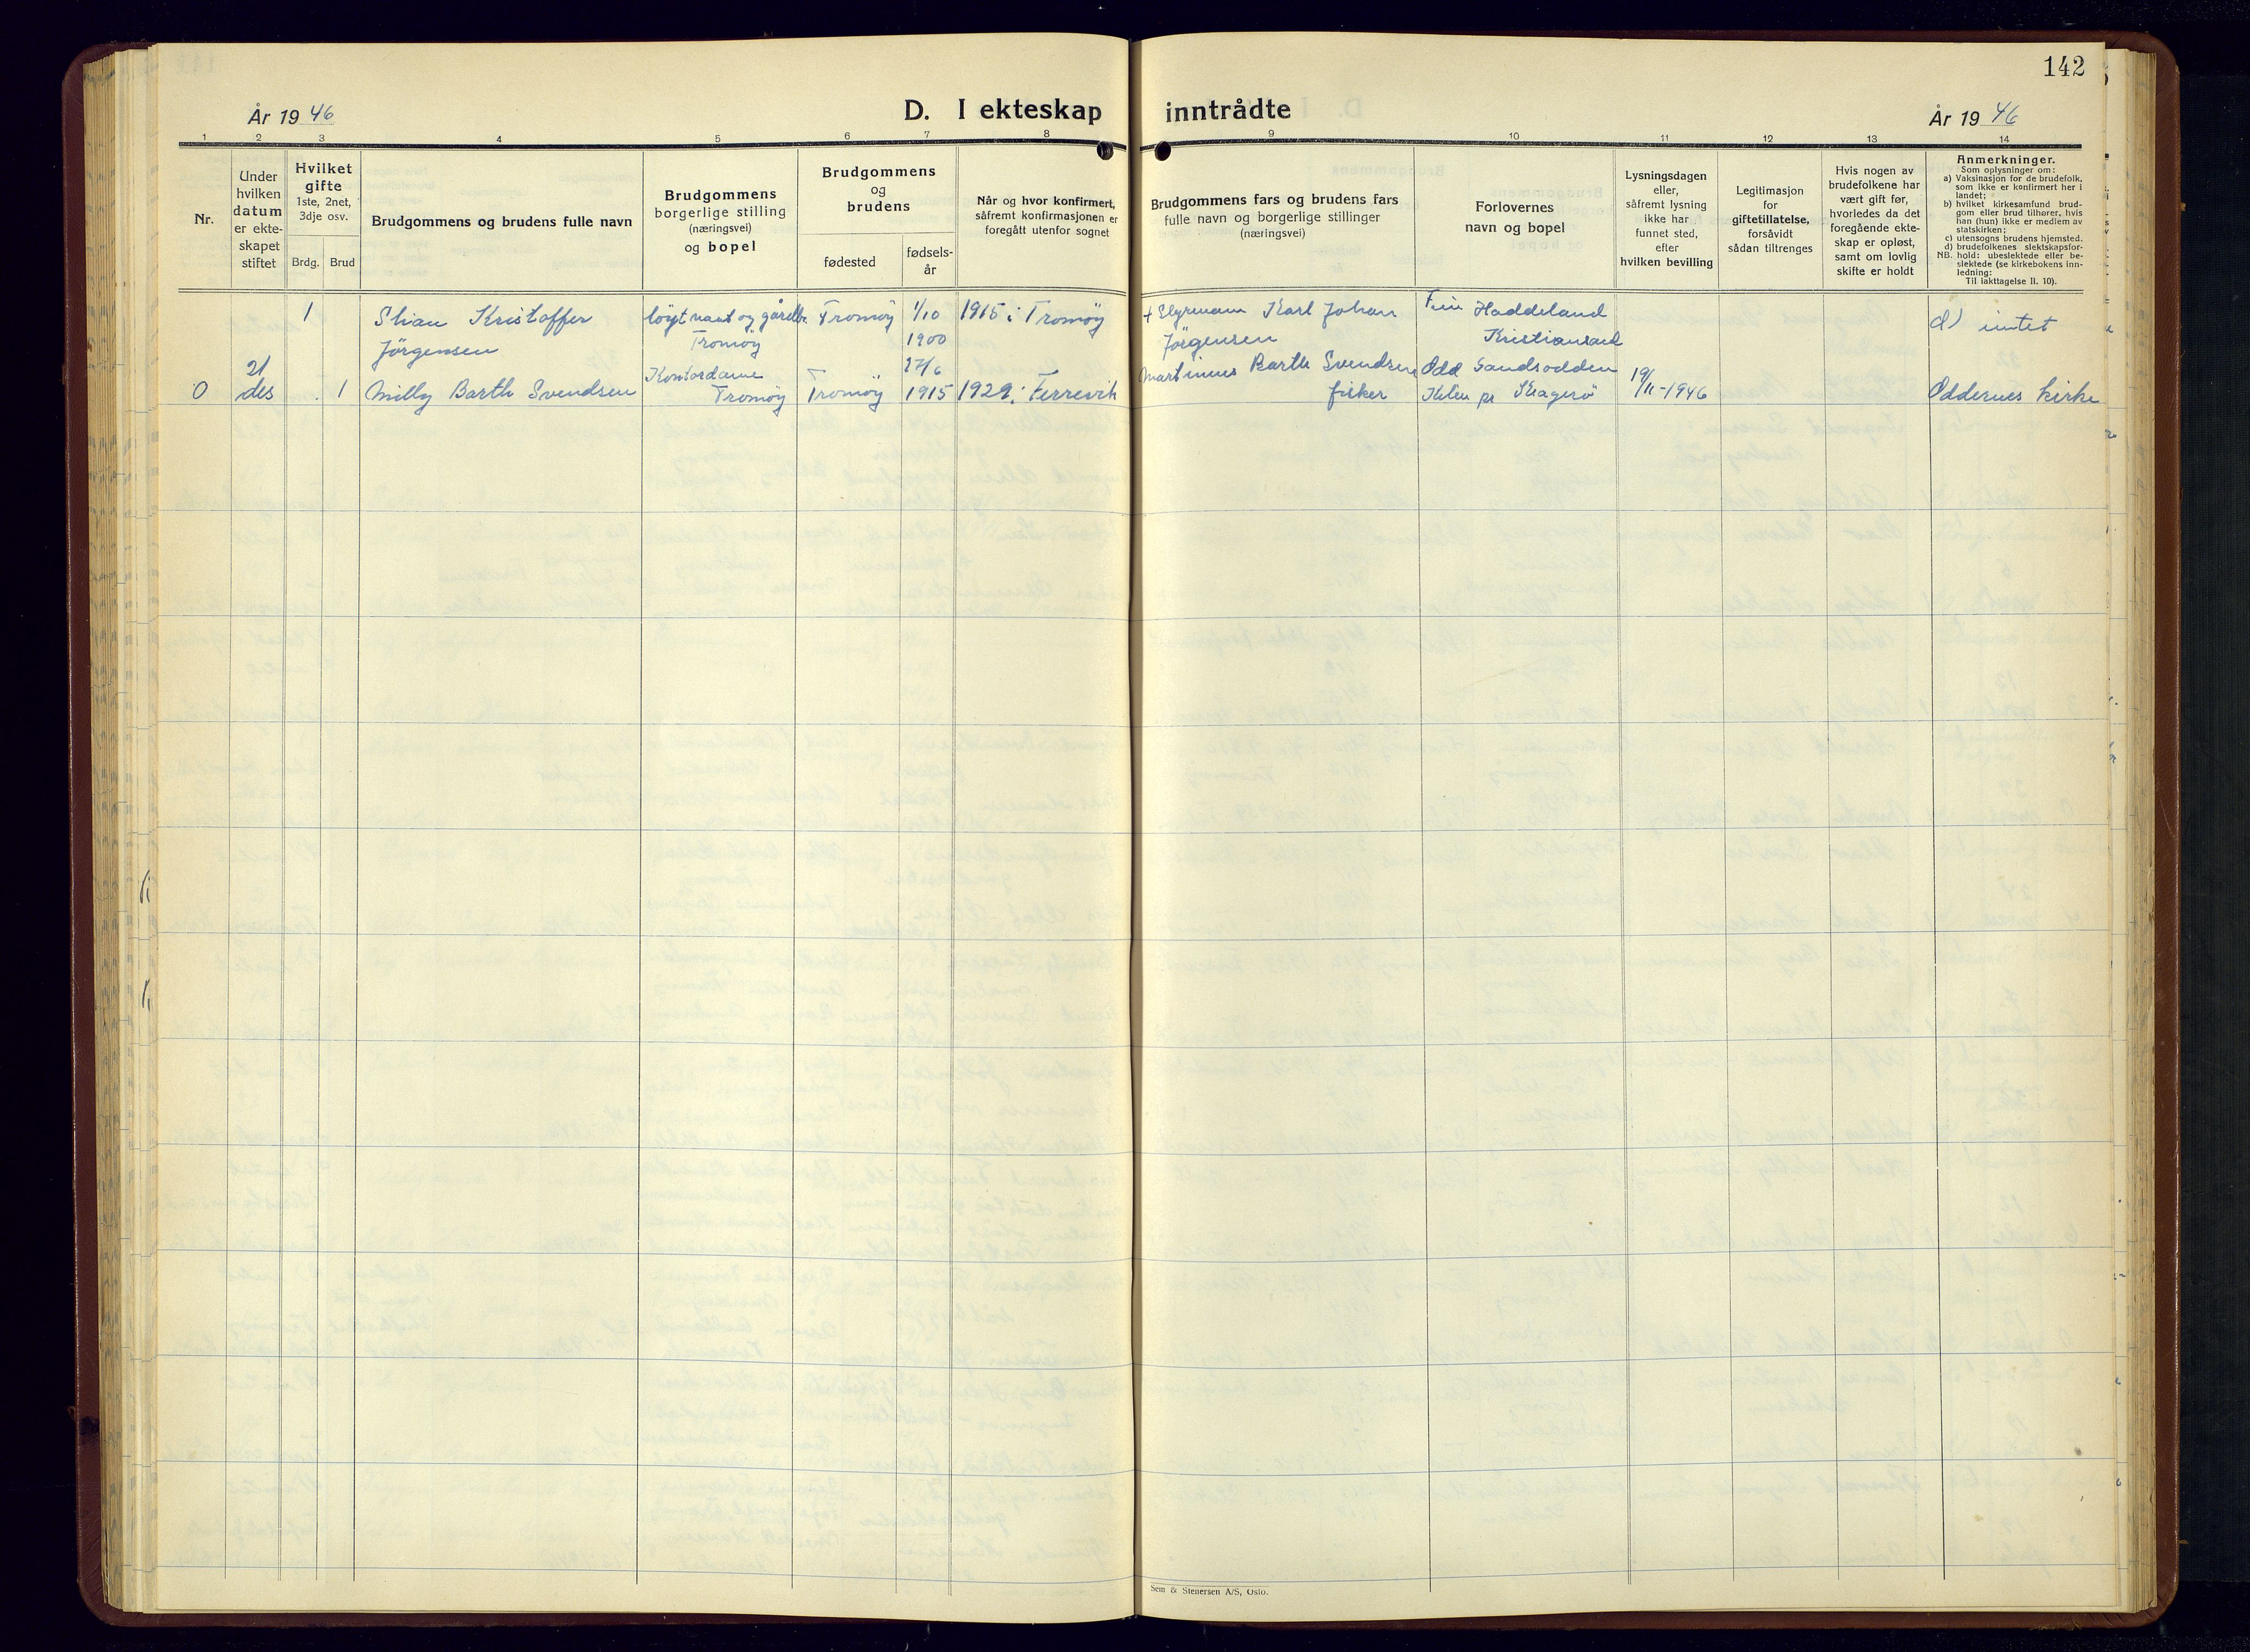 142
År 1946
D. I ekteskap inntrådte
År 1946
1 2 3 4 5 6 7 8 9 10 11 12 13 14
Nr.
Under
hvilken
datum
er ekte-
skapet
stiftet
Hvilket
gifte
1ste, 2net,
3dje osv.
Brdg. Brud
Brudgommens og brudens fulle navn
Brudgommens
borgerlige stilling
(næringsvei)
og bopel
Brudgommens
og
brudens
fødested
fødsels-
år
Når og hvor konfirmert,
såfremt konfirmasjonen er
foregått utenfor sognet
Brudgommens fars og brudens fars
fulle navn og borgerlige stillinger
(næringsvei)
Forlovernes
navn og bopel
Lysningsdagen
eller,
såfremt lysning
ikke har
funnet sted,
efter
hvilken bevilling
Legitimasjon
for
giftetillatelse,
forsåvidt
sådan tiltrenges
Hvis nogen av
brudefolkene har
vært gift før,
hvorledes da det
foregående ekte-
skap er opløst,
samt om lovlig
skifte er holdt
Anmerkninger.
Som oplysninger om:
a) Vaksinasjon for de brudefolk,
som ikke er konfirmert her i
landet;
b) hvilket kirkesamfund brud-
gom eller brud tilhører, hvis
han (hun) ikke er medlem av
statskirken;
c) utensogns brudens hjemsted.
d) brudefolkenes slektskapsfor-
NB. hold: ubeslektede eller be-
slektede (se kirkebokens inn-
ledning:
Til iakttagelse II. 10).
1 Stian Kristoffer løytnant og gårdbr. Tromøy 1/10 1915 i Tromøy + Styrmann Karl Johan Haddeland d) intet
Jørgensen Tromøy 1900 Jørgensen Kristiansand
21 Kontordame 27/6 Martinius Barth Svendsen Odd Sandsodden 19/11-1946
0 des 1 Milly Barth Svendsen Tromøy Tromøy 1915 1929 i Færevik fisker Kilen pr Kragerø Oddernes kirke
Sem & Stenersen A/S, Oslo.